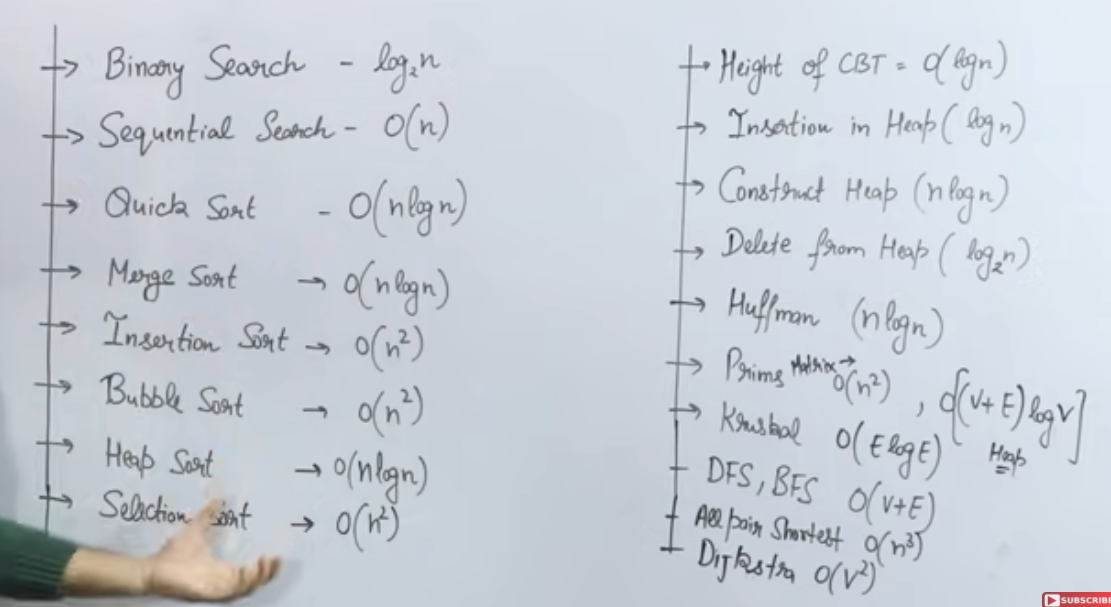 Binary Search - log₂n
Sequential Search - O(n)
Quick Sort - O(nlogn)
Merge Sort → O(nlogn)
Insertion Sort → O(n²)
Bubble Sort → O(n²)
Heap Sort → O(nlogn)
Selection Sort → O(n²)
Height of CBT = O(logn)
Insertion in Heap (logn)
Construct Heap (nlogn)
Delete from Heap (log₂n)
Huffman (nlogn)
Prims Matrix→ O(n²), O[(V+E)logV] Heap
Kruskal O(ElogE)
DFS, BFS O(V+E)
All pair Shortest O(n³)
Dijkstra O(V²)
SUBSCRIBE